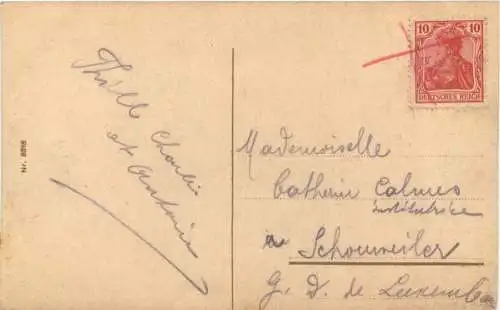 Thill Charlie
et Antoine
Nr. 8898
10 10
DEUTSCHES REICH
Mademoiselle
Catherin Calmes
institutrice
à Schouweiler
G. D. de Luxembg